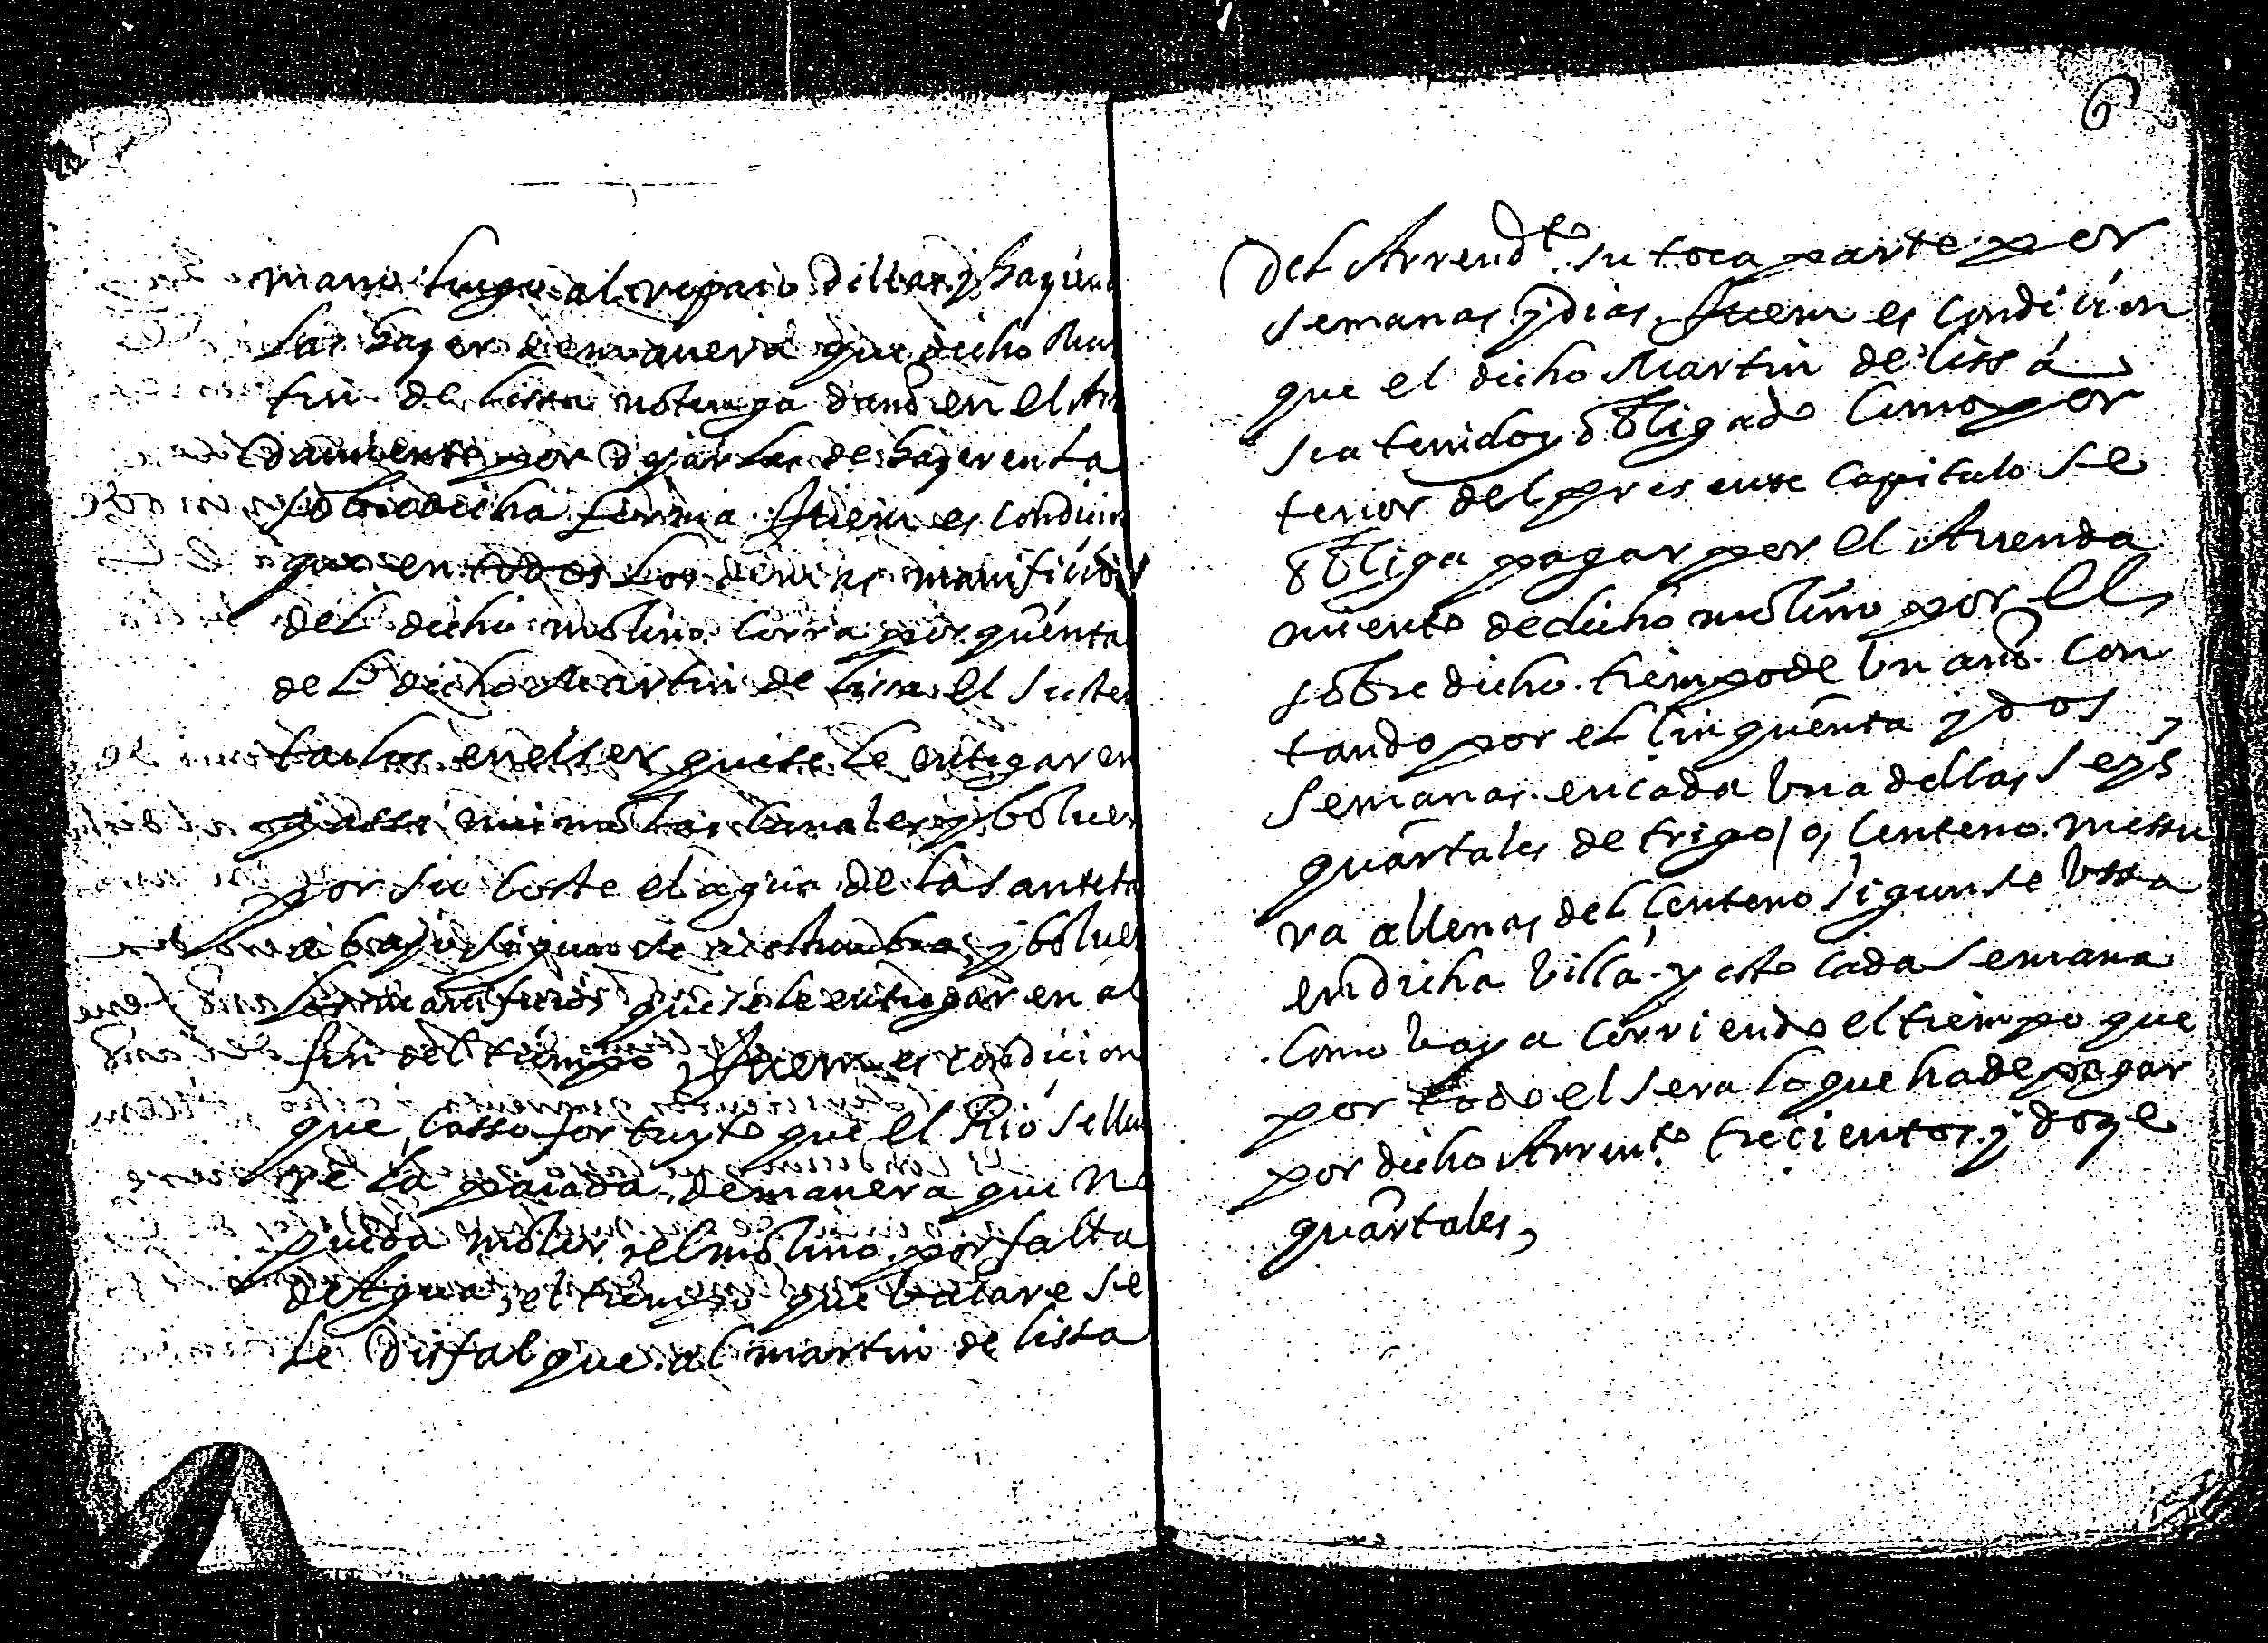 mano luego al reparo dellas y haziend
las hazer de manera que dicho Mar
tin de lissa no tenga daño en el Arr
damiento por dejarlas de hazer en la
sobredicha forma. Item es condicion
que en todos los demas manificios
del dicho molino corra por quenta
del dicho Martin de lissa el susten
tarlos en el ser que se le entregaren
y assi mismo las canales y bolver
por su coste el agua de la
abajo segun se acostumbra, y bolver
los manificios que se le entregaren al
fin del tiempo, Item es condicion
que casso fortuyto que el Rio se lleva
re la parada, de manera que no
pueda moler, el molino por falta
de Agua, el tiempo que bacare se
le disfalque al martin de lissa
6
del Arrendto. su toca parte por
semanas y dias. Item es condicion
que el dicho Martin de lissa
sea tenido y obligado como por
tenor del presente Capitulo se
obliga pagar por el Arrenda
miento de dicho molino por el
sobre dicho. tiempo de un año. Con
tando por el cinquenta y dos
semanas. en cada una dellas seys
quartales de trigo, o, centeno. messu
ra allenas del centeno segun se ussa
en dicha villa. y esto cada semana
como baya corriendo el tiempo que
por todo el sera lo que ha de pagar
por dicho Arrento. trecientos. y doze
quartales,